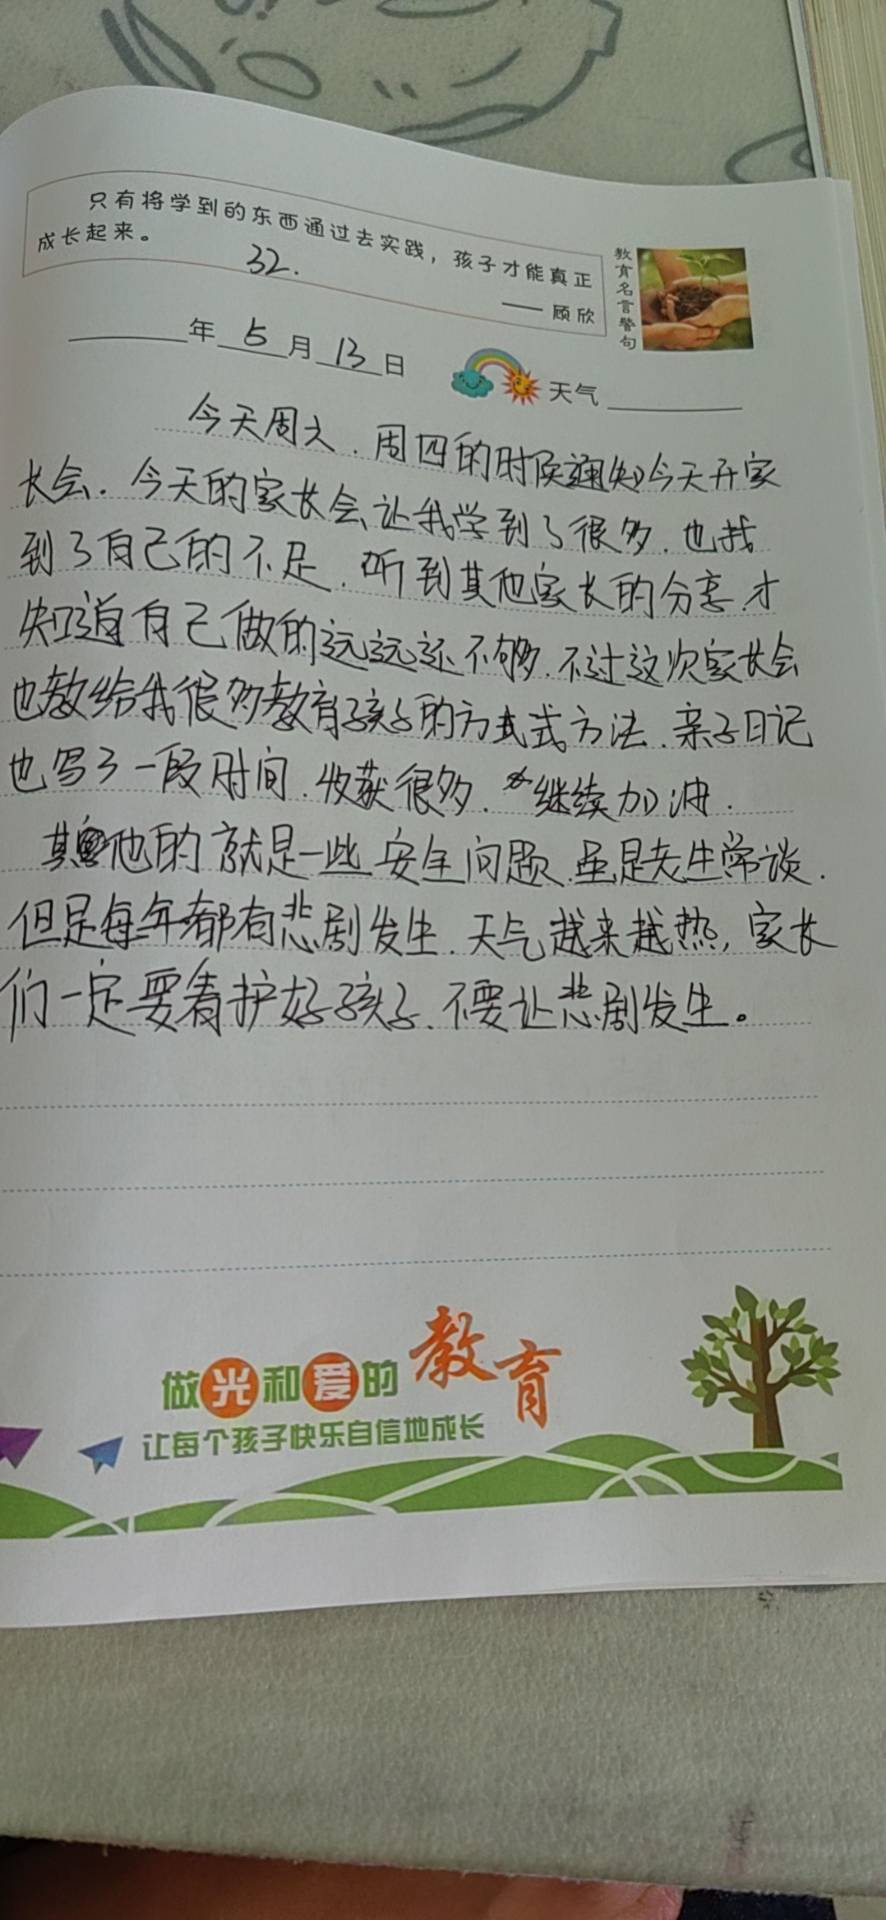 只有将学到的东西通过去实践，孩子才能真正
成长起来。
——顾欣
教育名言警句
32.
年5月13日
天气
今天周六.周四的时候通知今天开家
长会.今天的家长会让我学到了很多.也找
到了自己的不足.听到其他家长的分享.才
知道自己做的远远还不够.不过这次家长会
也教给我很多教育孩子的方式式方法.亲子日记
也写了一段时间.收获很多.继续加油.
其他的就是一些安全问题.虽是老生常谈.
但是每年都有悲剧发生.天气越来越热,家长
们一定要看护好孩子.不要让悲剧发生。
做光和爱的教育
让每个孩子快乐自信地成长